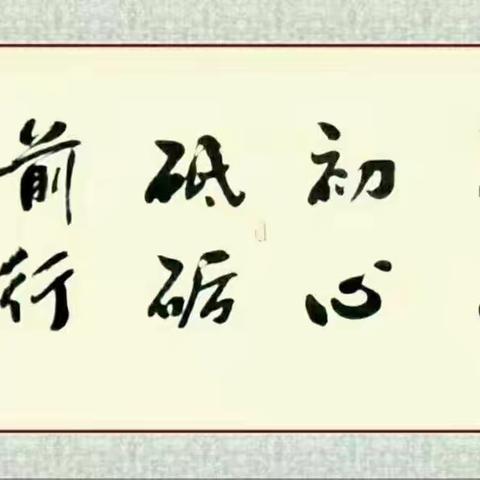 初心
砥砺
前行